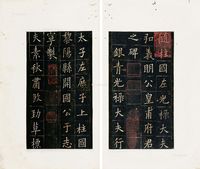 隋柱國左光祿大夫
弘義明公皇甫府君
之碑
銀青光祿大夫行
太子左庶子上柱國
黎陽縣開國公于志
寧製
夫素秋肅煞勁草標